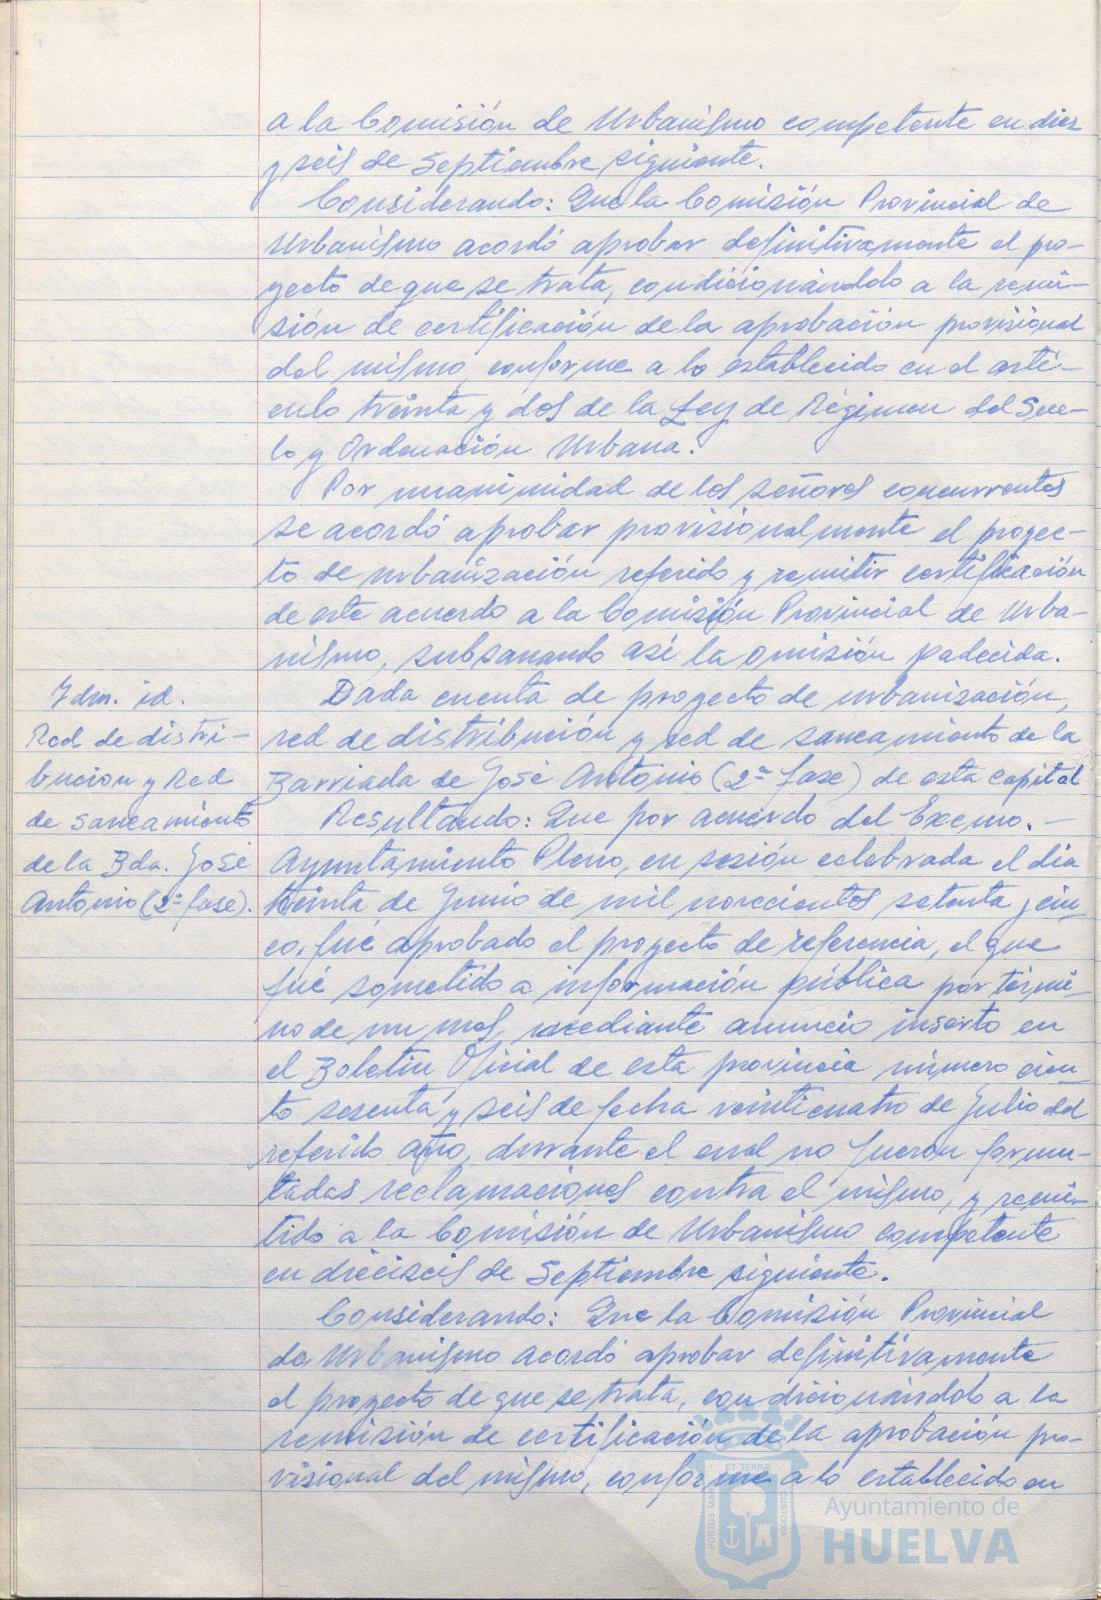 a la Comisión de Urbanismo competente en diez
y seis de Septiembre siguiente.
Considerando: Que la Comisión Provincial de
Urbanismo acordó aprobar definitivamente el pro-
yecto de que se trata, condicionándolo a la remi-
sión de certificación de la aprobación provisional
del mismo, conforme a lo establecido en el artí-
culo treinta y dos de la Ley de Régimen del Sue-
lo y Ordenación Urbana.
Por unanimidad de los señores concurrentes
se acordó aprobar provisionalmente el proyec-
to de urbanización referido y remitir certificación
de este acuerdo a la Comisión Provincial de Urba-
nismo, subsanando así la omisión padecida.
Idm. id.
Red de distri-
bución y Red
de saneamiento
de la Bda. José
Antonio (2ª fase).
Dada cuenta de proyecto de urbanización,
red de distribución y red de saneamiento de la
Barriada de José Antonio (2ª fase) de esta capital
Resultando: Que por acuerdo del Excmo. -
Ayuntamiento Pleno, en sesión celebrada el día
treinta de Junio de mil novecientos setenta y cin-
co, fué aprobado el proyecto de referencia, el que
fué sometido a información pública por térmi-
no de un mes, mediante anuncio inserto en
el Boletín Oficial de esta provincia número cien-
to sesenta y seis de fecha veinticuatro de Julio del
referido año, durante el cual no fueron formu-
ladas reclamaciones contra el mismo, y remi-
tido a la Comisión de Urbanismo competente
en dieciseis de Septiembre siguiente.
Considerando: Que la Comisión Provincial
de Urbanismo acordó aprobar definitivamente
el proyecto de que se trata, condicionándolo a la
remisión de certificación de la aprobación pro-
visional del mismo, conforme a lo establecido en
PORTUS MARIS
ET TERRÆ
CUSTODIA
Ayuntamiento de
HUELVA